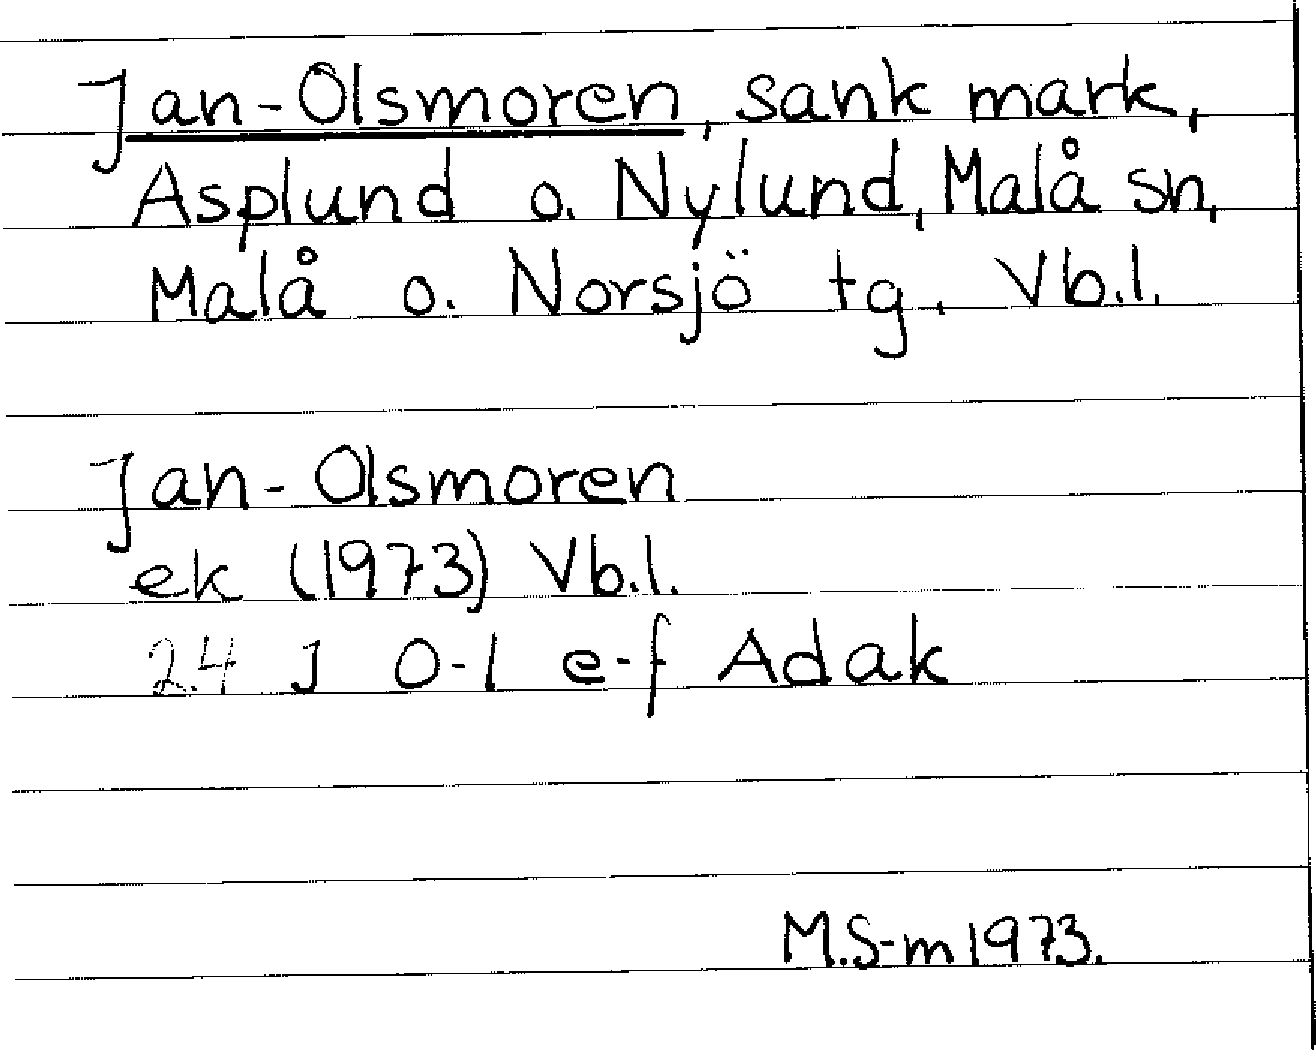 Jan-Olsmoren, sank mark,
Asplund o. Nylund, Malå sn,
Malå o. Norsjö tg, Vb.l.
Jan-Olsmoren
ek (1973) Vb.l.
24 J 0-1 e-f Adak
M.S-m 1973.